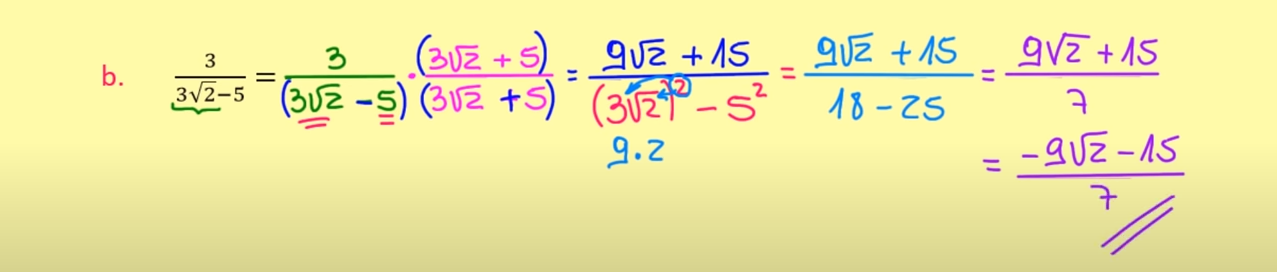 b. 3/(3√2−5) = 3/(3√2 −5) · (3√2 + 5)/(3√2 +5) = (9√2 + 15)/((3√2)² − 5²) = (9√2 + 15)/(18 − 25) = (9√2 + 15)/7
9.2
= (−9√2 − 15)/7